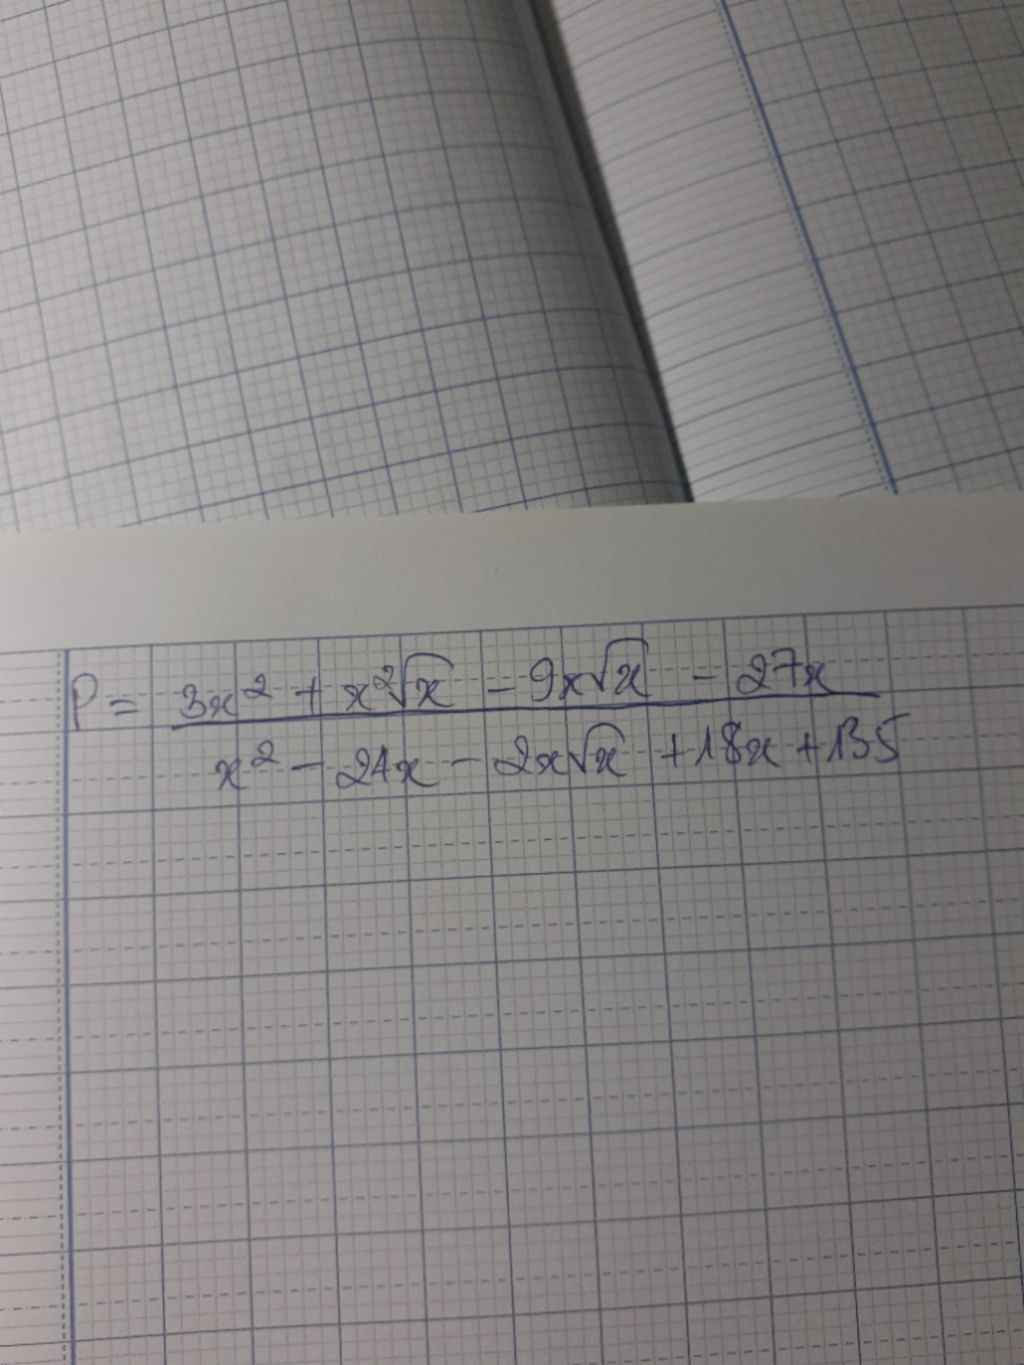 P = 3x² + x²√x - 9x√x - 27x
x² - 24x - 2x√x + 18x + 135